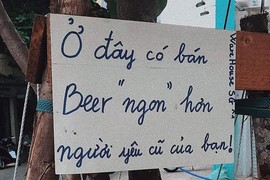 Ở đây có bán
Beer "ngon" hơn
người yêu cũ của bạn!
Ware House SG